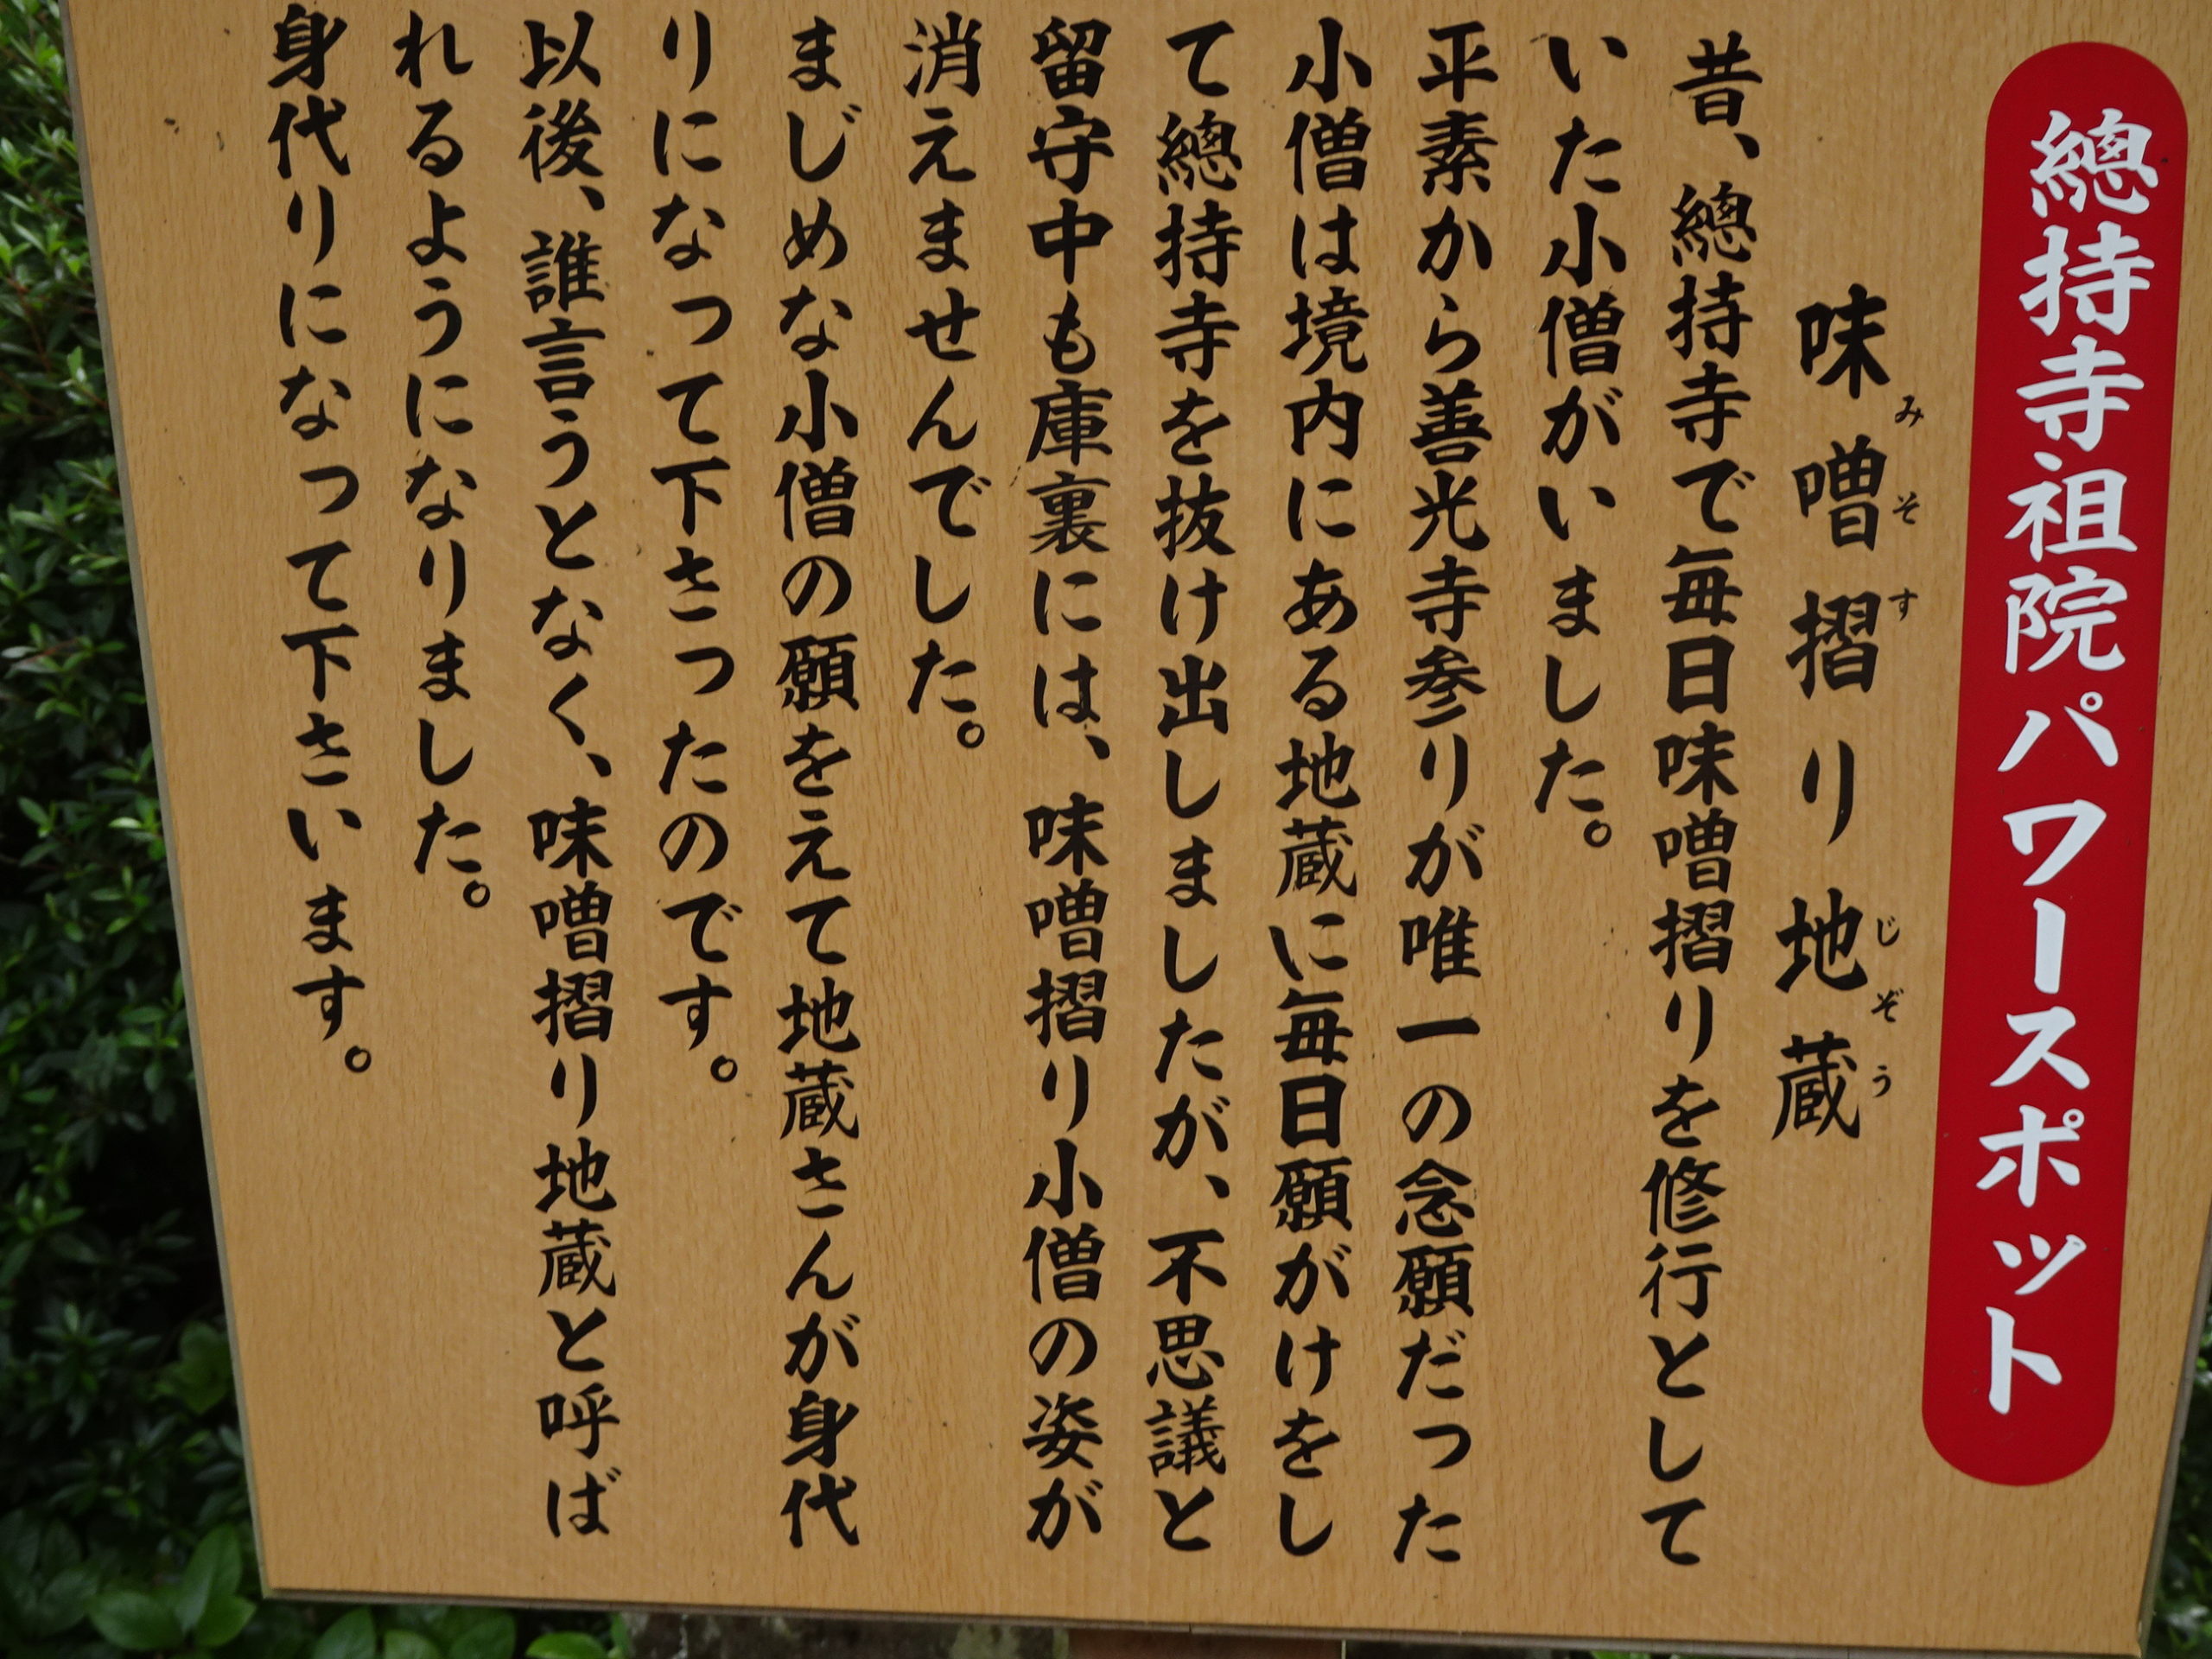 總持寺祖院パワースポット
味噌摺り地蔵
みそす じぞう
昔、總持寺で毎日味噌摺りを修行として
いた小僧がいました。
平素から善光寺参りが唯一の念願だった
小僧は境内にある地蔵に毎日願がけをし
て總持寺を抜け出しましたが、不思議と
留守中も庫裏には、味噌摺り小僧の姿が
消えませんでした。
まじめな小僧の願をえて地蔵さんが身代
りになって下さったのです。
以後、誰言うとなく、味噌摺り地蔵と呼ば
れるようになりました。
身代りになって下さいます。